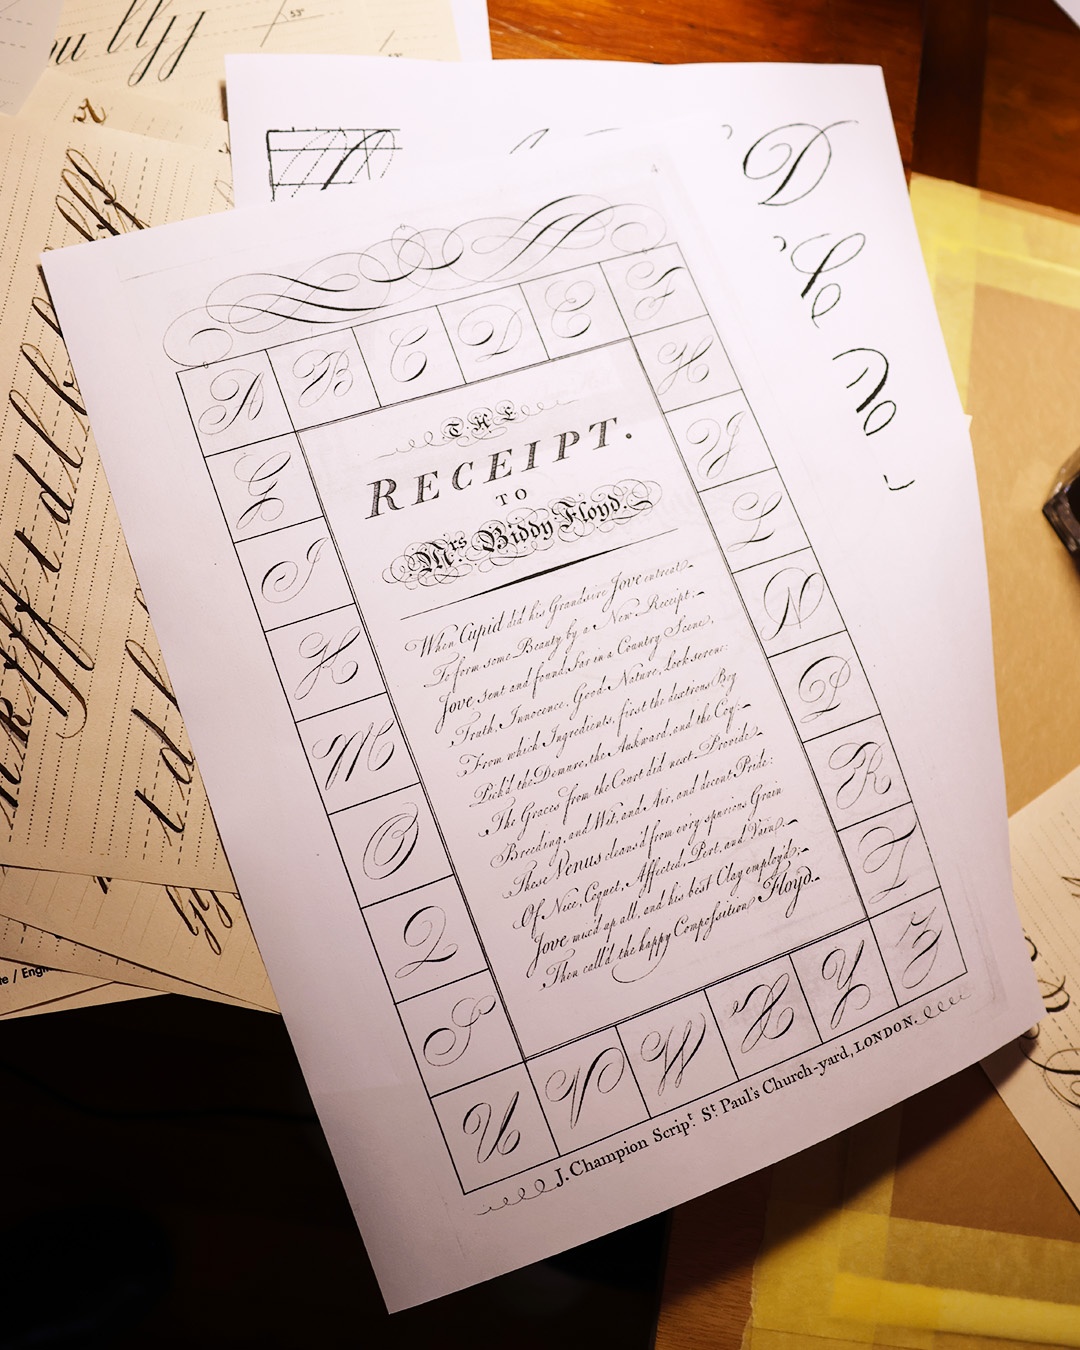 4
A B C D E F
G H
I J
K L
M N
O P
Q R
S T
U V W X Y Z
THE
RECEIPT.
TO
Mrs Biddy Floyd.
When Cupid did his Grandsire Jove entreat
To form some Beauty by a New Receipt:
Jove sent and found far in a Country Scene,
Truth, Innocence, Good-Nature, Look serene:
From which Ingredients, first the dextrous Boy
Pick'd the Demure, the Aukward, and the Coy:
The Graces from the Court did next Provide
Breeding, and Wit, and Air, and decent Pride:
These Venus cleans'd from ev'ry spurious Grain
Of Nice, Coquet, Affected, Pert, and Vain.
Jove mix'd up all, and his best Clay employ'd;
Then call'd the happy Composition Floyd.
J. Champion Script. St. Paul's Church-yard, LONDON.
D
53°
t d l b
t d